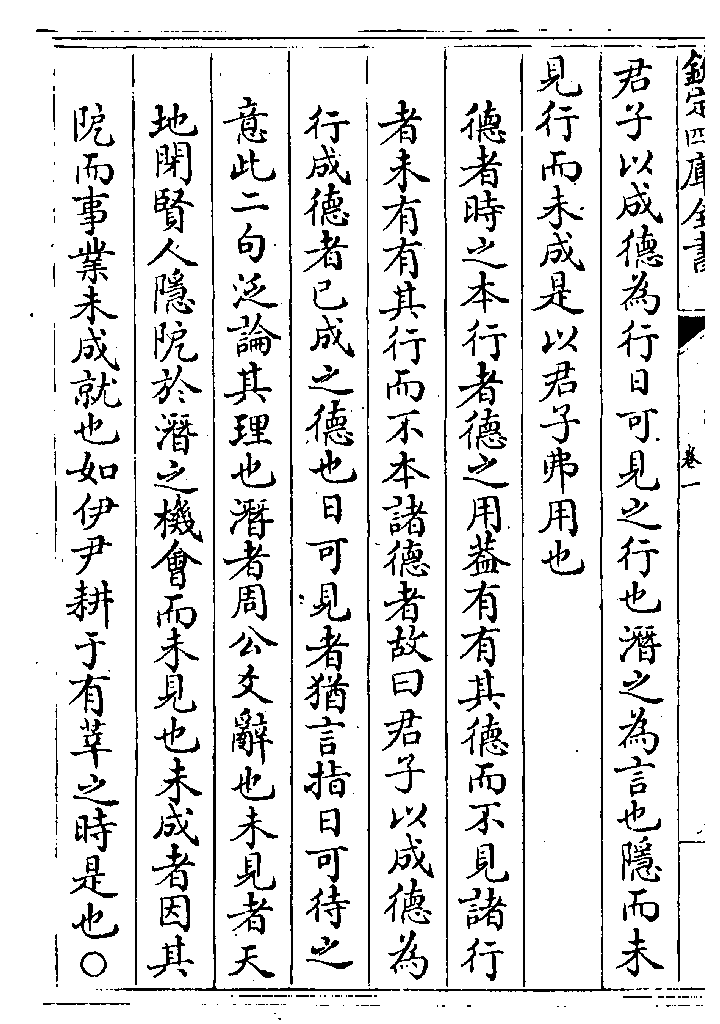 欽定四庫全書
卷一
君子以成德為行日可見之行也潛之為言也隱而未
見行而未成是以君子弗用也
德者時之本行者德之用葢有有其德而不見諸行
者未有有其行而不本諸德者故曰君子以成德為
行成德者已成之德也日可見者猶言指日可待之
意此二句泛論其理也潛者周公爻辭也未見者天
地閉賢人隱阨於潛之機會而未見也未成者因其
阨而事業未成就也如伊尹耕于有莘之時是也○